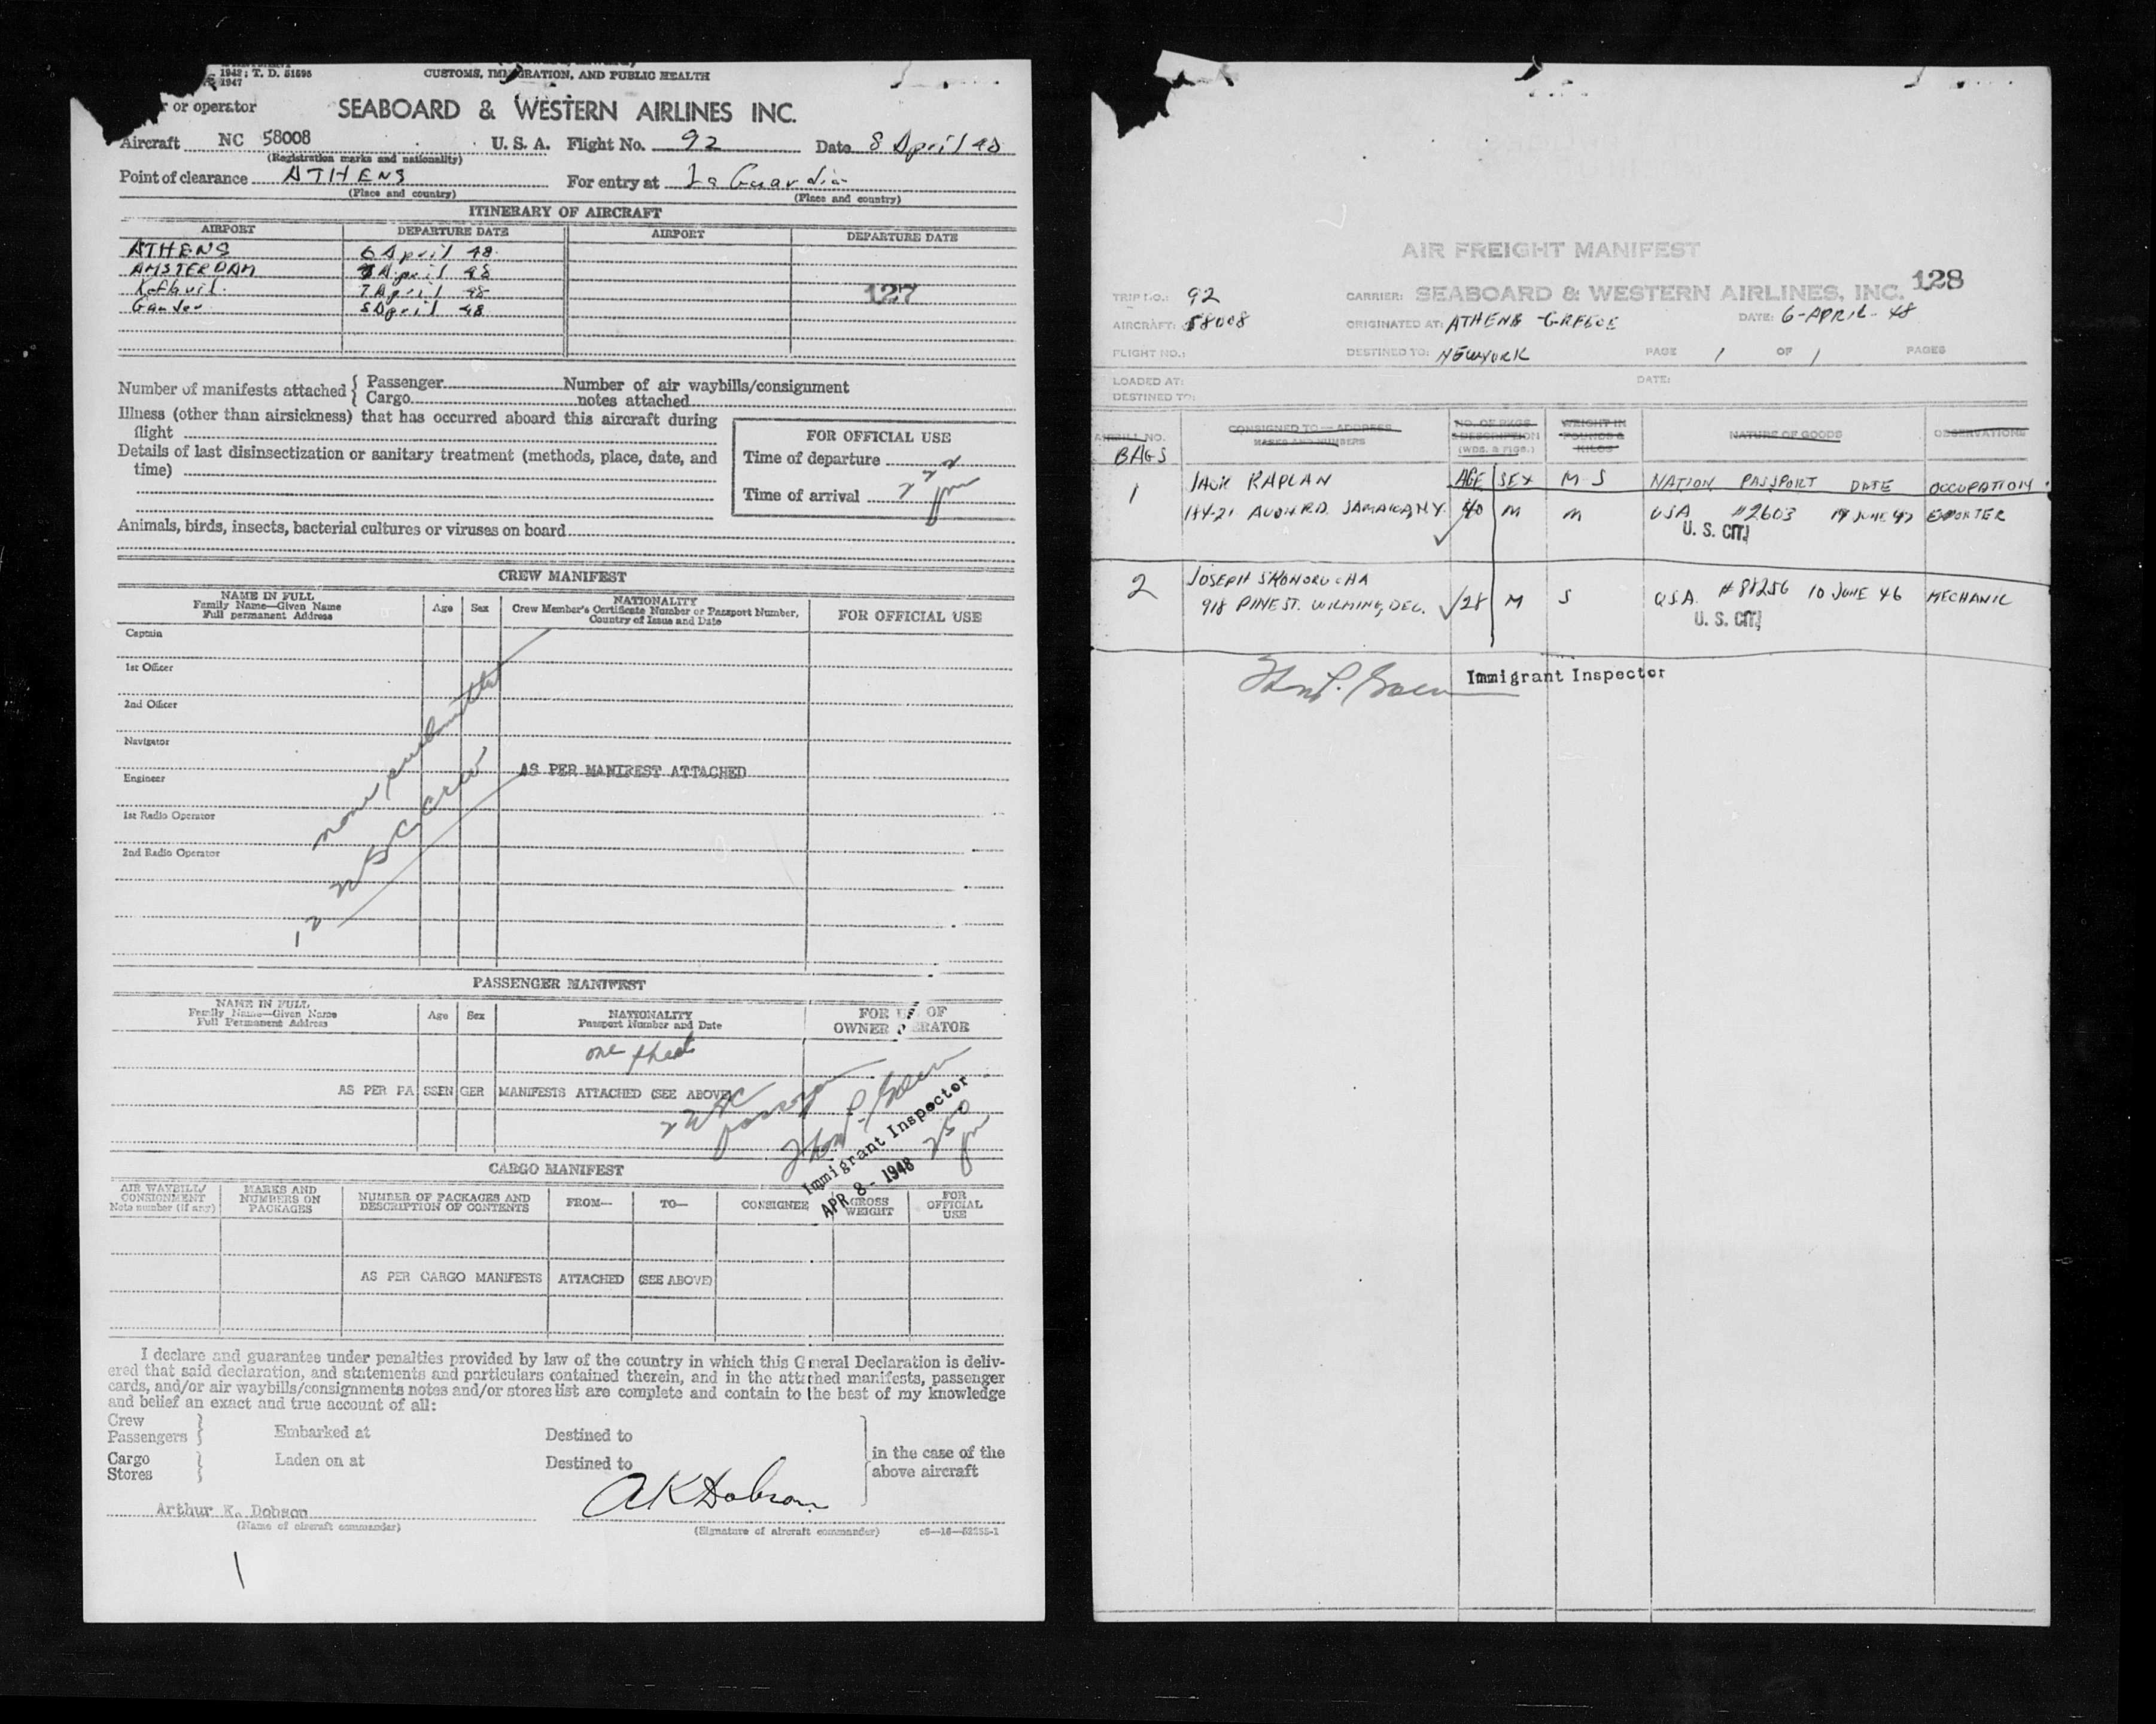 1948; T. D. 51595
1947
CUSTOMS, IMMIGRATION, AND PUBLIC HEALTH
or operator
SEABOARD & WESTERN AIRLINES INC.
Aircraft NC 58008 U. S. A. Flight No. 92 Date 8 April 48
(Registration marks and nationality)
Point of clearance ATHENS For entry at La Guardia
(Place and country) (Place and country)
ITINERARY OF AIRCRAFT
AIRPORT DEPARTURE DATE AIRPORT DEPARTURE DATE
ATHENS 6 April 48
AMSTERDAM 7 April 48
7 April 48 127
Gander 8 April 48
Number of manifests attached { Passenger Number of air waybills/consignment
Cargo notes attached
Illness (other than airsickness) that has occurred aboard this aircraft during
flight
Details of last disinsectization or sanitary treatment (methods, place, date, and
time)
FOR OFFICIAL USE
Time of departure
Time of arrival pm
Animals, birds, insects, bacterial cultures or viruses on board
CREW MANIFEST
NAME IN FULL
Family Name—Given Name
Full permanent Address
Age Sex
NATIONALITY
Crew Member's Certificate Number or Passport Number,
Country of Issue and Date
FOR OFFICIAL USE
Captain
1st Officer
2nd Officer
Navigator
AS PER MANIFEST ATTACHED
Engineer
1st Radio Operator
2nd Radio Operator
none submitted
crew
12
PASSENGER MANIFEST
NAME IN FULL
Family Name—Given Name
Full Permanent Address
Age Sex
NATIONALITY
Passport Number and Date
FOR USE OF
OWNER OPERATOR
one sheet
AS PER PASSENGER MANIFESTS ATTACHED (SEE ABOVE)
Immigrant Inspector
APR 8 - 1948
250 pm
CARGO MANIFEST
AIR WAYBILL/
CONSIGNMENT
Note number (if any)
MARKS AND
NUMBERS ON
PACKAGES
NUMBER OF PACKAGES AND
DESCRIPTION OF CONTENTS
FROM— TO— CONSIGNEE
GROSS
WEIGHT
FOR
OFFICIAL
USE
AS PER CARGO MANIFESTS ATTACHED (SEE ABOVE)
I declare and guarantee under penalties provided by law of the country in which this General Declaration is deliv-
ered that said declaration, and statements and particulars contained therein, and in the attached manifests, passenger
cards, and/or air waybills/consignments notes and/or stores list are complete and contain to the best of my knowledge
and belief an exact and true account of all:
Crew
Passengers } Embarked at Destined to
Cargo
Stores } Laden on at Destined to
in the case of the
above aircraft
Arthur K. Dobson AKDobson
(Name of aircraft commander) (Signature of aircraft commander)
1
AIR FREIGHT MANIFEST
128
TRIP NO.: 92 CARRIER: SEABOARD & WESTERN AIRLINES, INC.
AIRCRAFT: 58008 ORIGINATED AT: ATHENS GREECE DATE: 6-APRIL-48
FLIGHT NO.: DESTINED TO: NEWYORK PAGE 1 OF 1 PAGES
LOADED AT: DATE:
DESTINED TO:
AIRBILL NO. CONSIGNED TO — ADDRESS
MARKS AND NUMBERS
NO. OF PKGS
& DESCRIPTION
(WDS. & FIGS.)
WEIGHT IN
POUNDS &
KILOS
NATURE OF GOODS OBSERVATIONS
BAGS
JACK KAPLAN AGE SEX M-S NATION PASSPORT DATE OCCUPATION
1 184-21 AVON RD. JAMAICA, NY. 40 M M USA #2603 19 JUNE 47 EXPORTER
U. S. CIT.
2 JOSEPH
918 PINE ST. WILMING, DEL. 28 M S U.S.A. #81256 10 JUNE 46 MECHANIC
U. S. CIT.
Immigrant Inspector